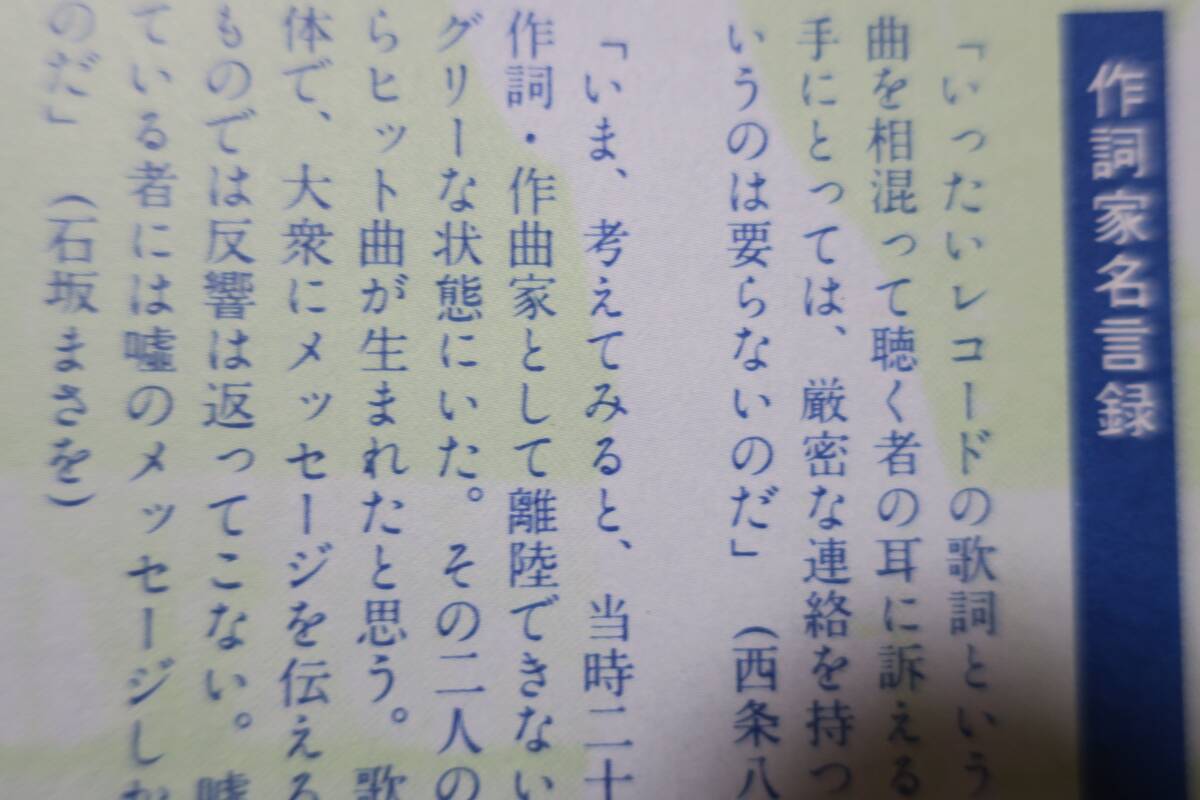 作詞家名言録
「いったいレコードの歌詞という
曲を相混って聴く者の耳に訴える
手にとっては、厳密な連絡を持つ
いうのは要らないのだ」　(西条八
「いま、考えてみると、当時二十
作詞・作曲家として離陸できない
グリーな状態にいた。その二人の
らヒット曲が生まれたと思う。歌
体で、大衆にメッセージを伝える
ものでは反響は返ってこない。嘘
ている者には嘘のメッセージしか
のだ」　(石坂まさを)